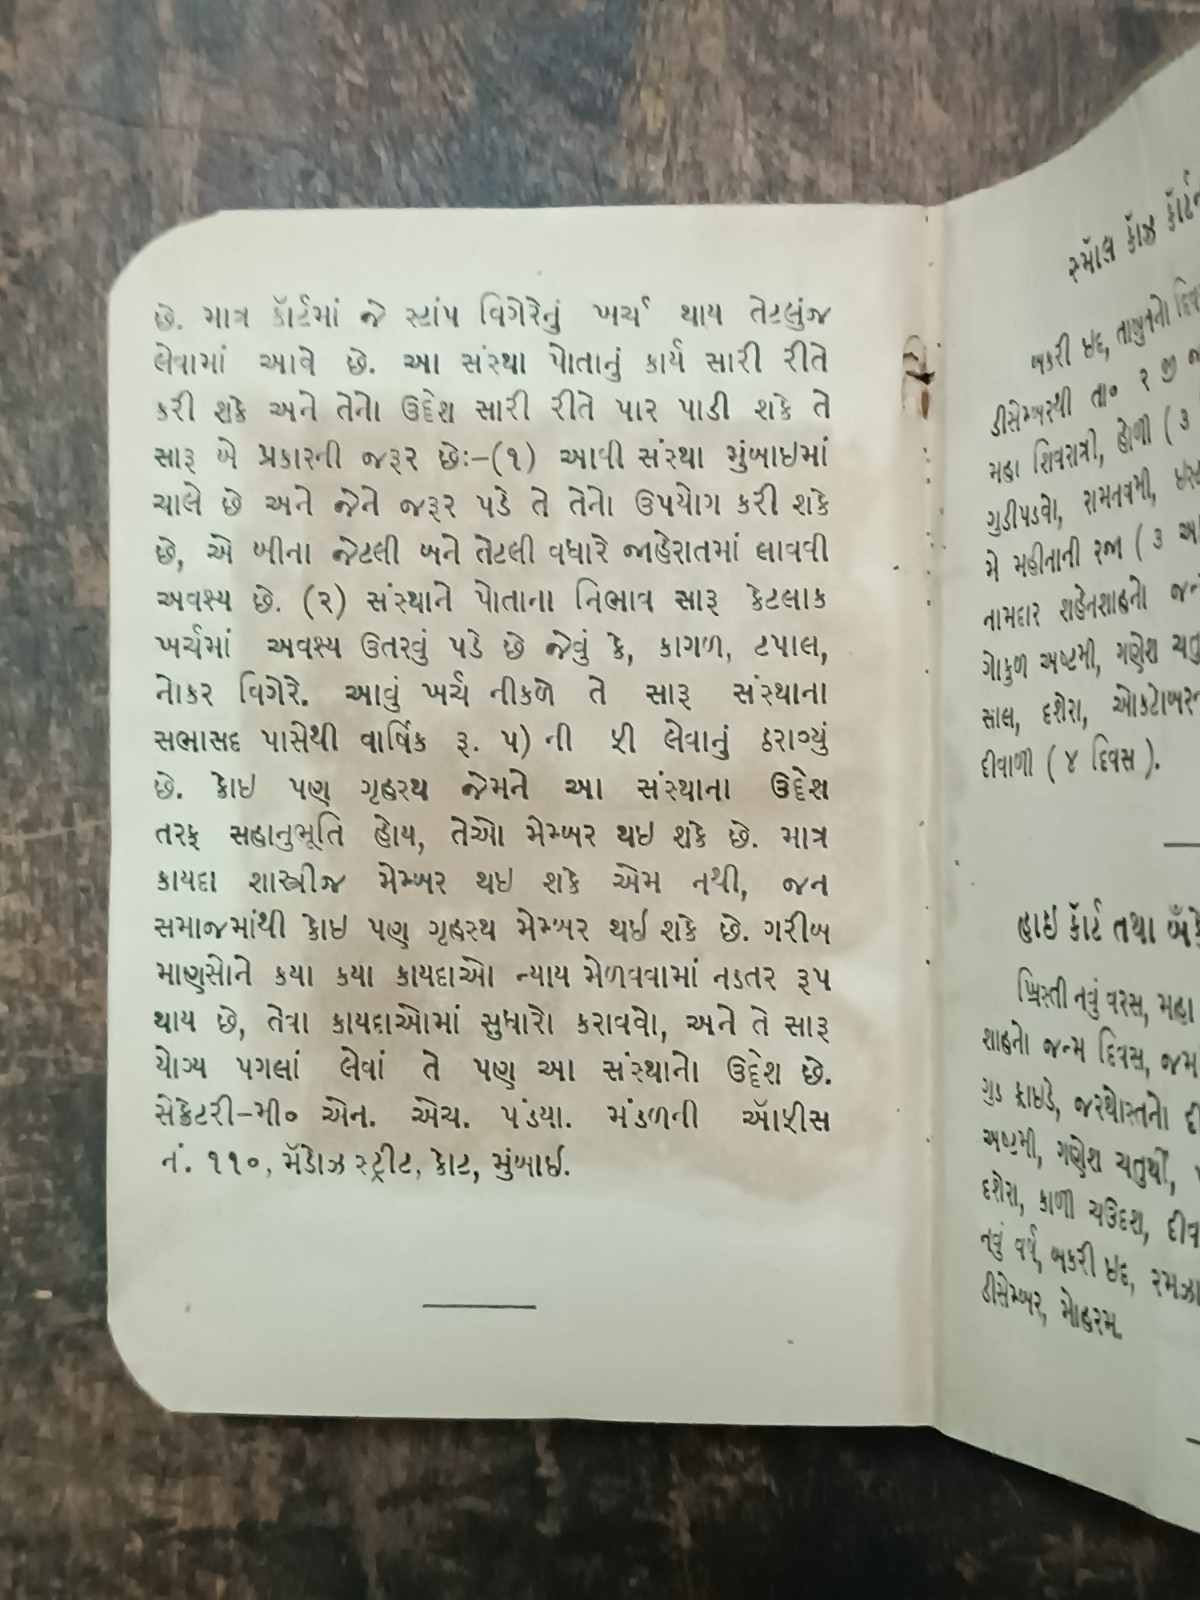 છે. માત્ર કૉર્ટમાં જે સ્ટાંપ વિગેરેનું ખર્ચ થાય તેટલુંજ
લેવામાં આવે છે. આ સંસ્થા પોતાનું કાર્ય સારી રીતે
કરી શકે અને તેનો ઉદ્દેશ સારી રીતે પાર પાડી શકે તે
સારૂ બે પ્રકારની જરૂર છેઃ-(૧) આવી સંસ્થા મુંબાઇમાં
ચાલે છે અને જેને જરૂર પડે તે તેનો ઉપયોગ કરી શકે
છે, એ બીના જેટલી બને તેટલી વધારે જાહેરાતમાં લાવવી
અવશ્ય છે. (૨) સંસ્થાને પોતાના નિભાવ સારૂ કેટલાક
ખર્ચમાં અવશ્ય ઉતરવું પડે છે જેવું કે, કાગળ, ટપાલ,
નોકર વિગેરે. આવું ખર્ચ નીકળે તે સારૂ સંસ્થાના
સભાસદ પાસેથી વાર્ષિક રૂ. ૫) ની ફી લેવાનું ઠરાવ્યું
છે. કોઇ પણ ગૃહસ્થ જેમને આ સંસ્થાના ઉદ્દેશ
તરફ સહાનુભૂતિ હોય, તેઓ મેમ્બર થઇ શકે છે. માત્ર
કાયદા શાસ્ત્રીજ મેમ્બર થઇ શકે એમ નથી, જન
સમાજમાંથી કોઇ પણ ગૃહસ્થ મેમ્બર થઈ શકે છે. ગરીબ
માણસોને કયા કયા કાયદાઓ ન્યાય મેળવવામાં નડતર રૂપ
થાય છે, તેવા કાયદાઓમાં સુધારો કરાવવો, અને તે સારૂ
યોગ્ય પગલાં લેવાં તે પણ આ સંસ્થાનો ઉદ્દેશ છે.
સેક્રેટરી-મી૦ એન. એચ. પંડયા. મંડળની ઑફીસ
નં. ૧૧૦, મૅડોઝ સ્ટ્રીટ, કોટ, મુંબાઈ.
સ્મૉલ કૉઝ કૉર્ટ
બકરી ઇદ, તાબુતનો
ડીસેમ્બરથી તા૦ ૨ જી
મહા શિવરાત્રી, હોળી ( ૩
ગુડીપડવો, રામનવમી,
મે મહીનાની રજા ( ૩
નામદાર શહેનશાહનો
ગોકુળ અષ્ટમી, ગણેશ
સાલ, દશેરા,
દીવાળી ( ૪ દિવસ ).
હાઇ કૉર્ટ તથા
ખ્રિસ્તી નવું વરસ, મહા
શાહનો જન્મ દિવસ,
ગુડ ફ્રાઇડે, જરથોસ્તનો
અષ્ટમી, ગણેશ ચતુર્થી,
દશેરા, કાળી ચઉદશ,
નવું વર્ષ, બકરી ઇદ,
ડીસેમ્બર, મોહરમ.